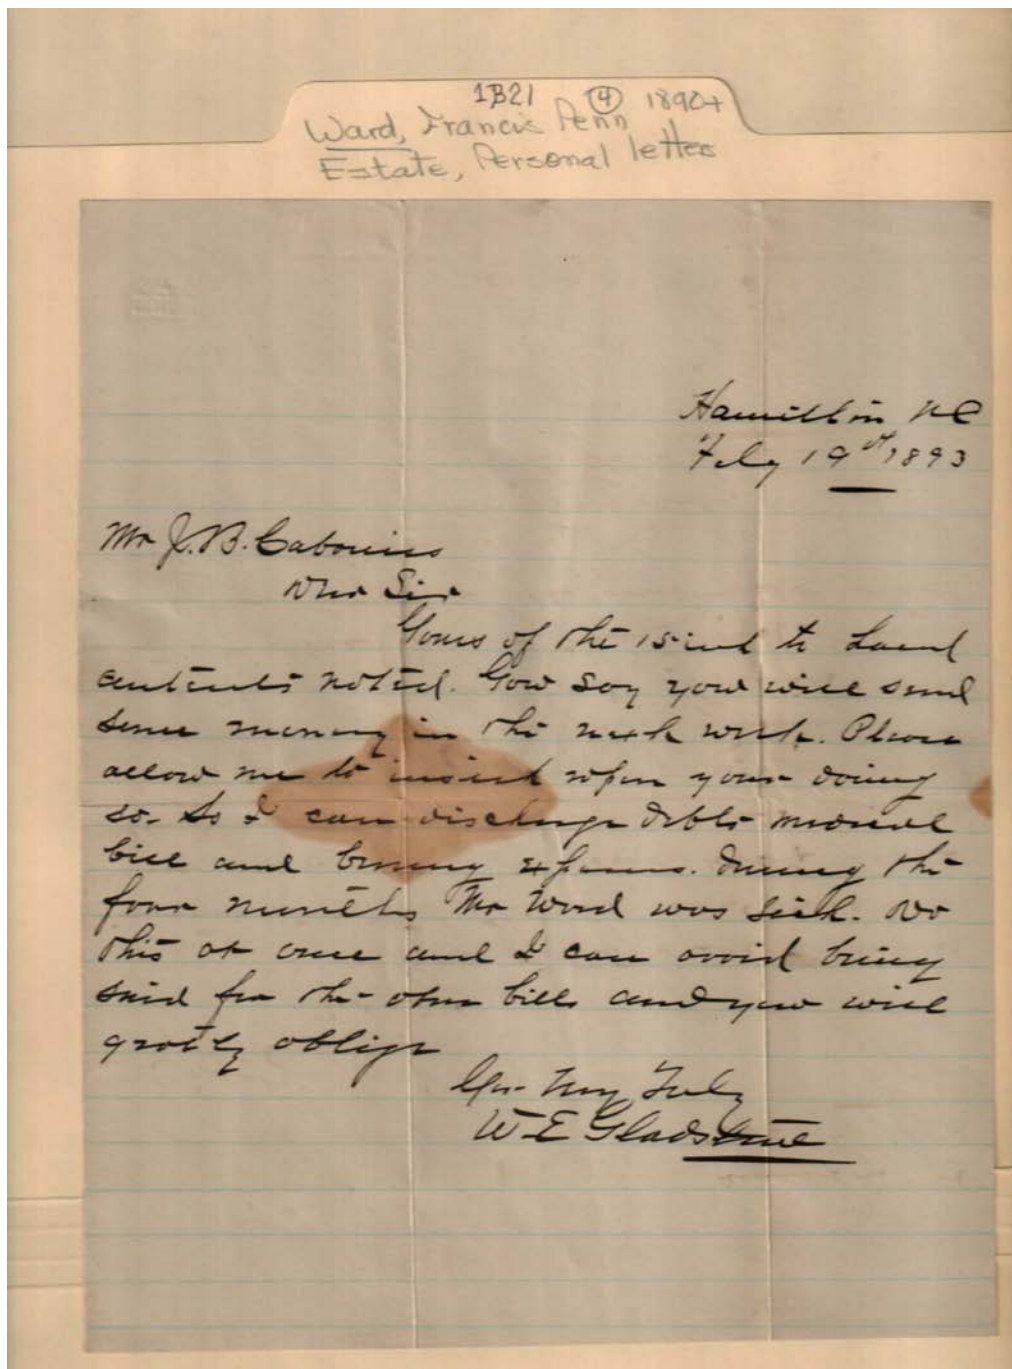 1B21 (4) 1890+
Ward, Francis Penn
Estate, Personal letters
Hamilton NC
Feby 19th 1893
Mr J. B. Cabaniss
Dear Sir
Yours of the 15 inst to hand
contents noted. You say you will send
some money in the next week. Please
allow me to insist upon your doing
so. So I can discharge debts medical
bill and expenses. During the
four months Mr Ward was sick. Do
this at once and I can avoid being
sued for the bills and you will
greatly oblige
Yrs Very Truly
W E Gladstone